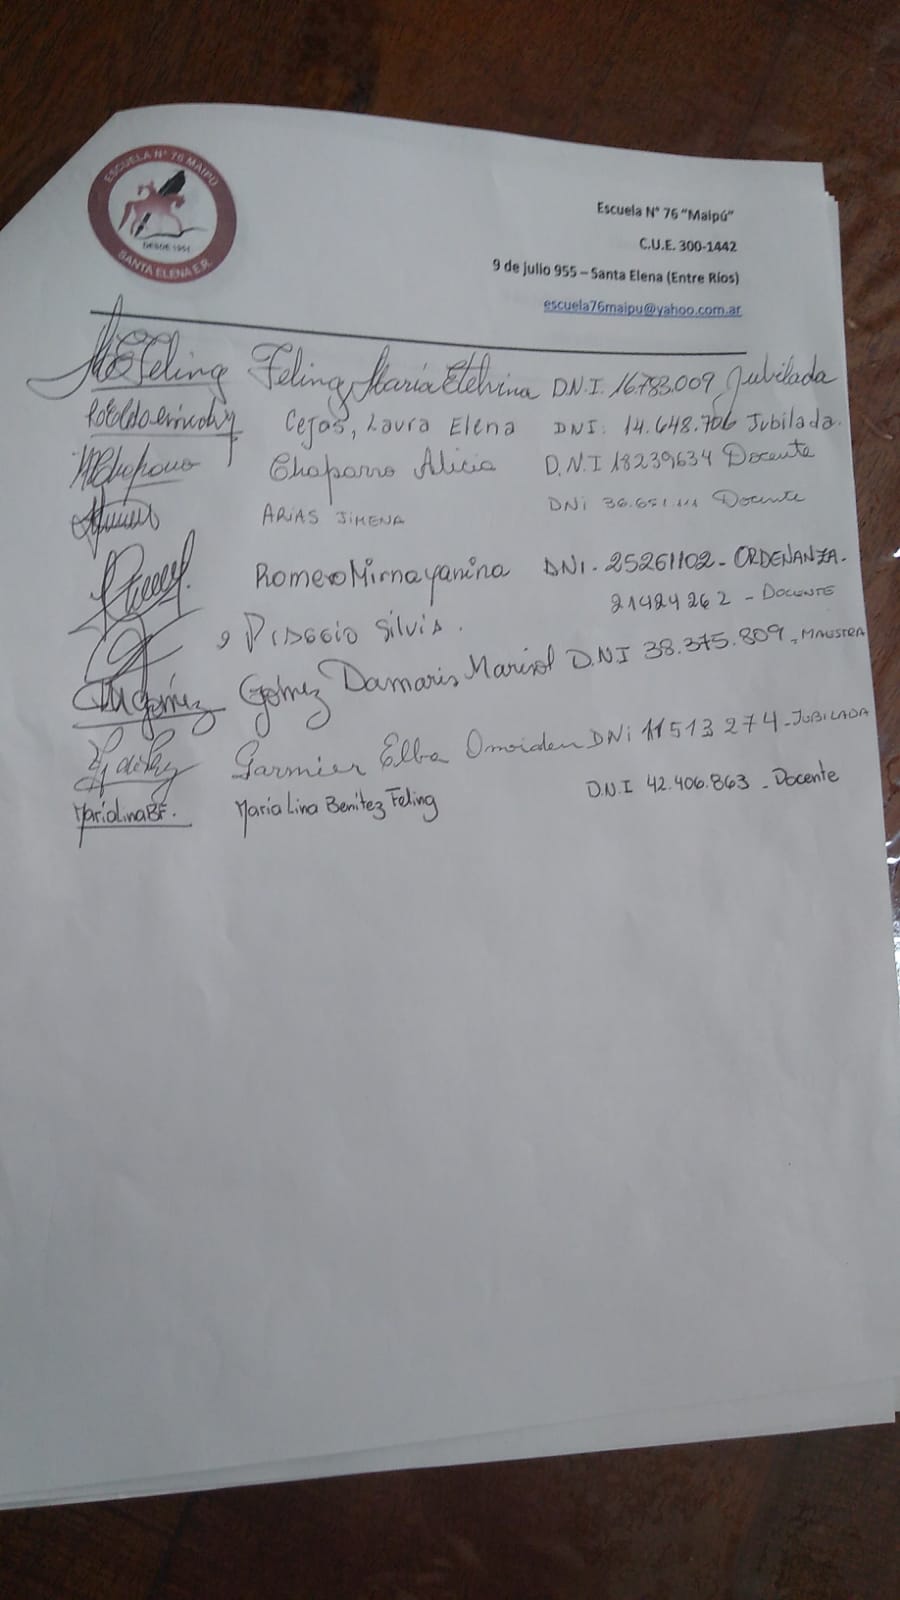 ESCUELA N° 76 MAIPÚ
DESDE 1951
SANTA ELENA E.R.
Escuela N° 76 "Maipú"
C.U.E. 300-1442
9 de julio 955 – Santa Elena (Entre Ríos)
escuela76maipu@yahoo.com.ar
MEFeling Feling, María Etelvina D.N.I. 16.783.009 Jubilada
Cejas, Laura Elena DNI: 14.648.706 Jubilada.
Chaparro Alicia D.N.I 18239634 Docente
ARIAS JIMENA DNi Docente
Romero Mirna yanina DNI. 25261102 - ORDENANZA.
Silvia. 21424262 - DOCENTE
Gómez Gómez Damaris Marisol D.N.I 38.375.809 - MAESTRA
Garnier Elba DNi 11513274 - JUBILADA
MaríaLinaBF. María Lina Benítez Feling D.N.I 42.406.863 - Docente